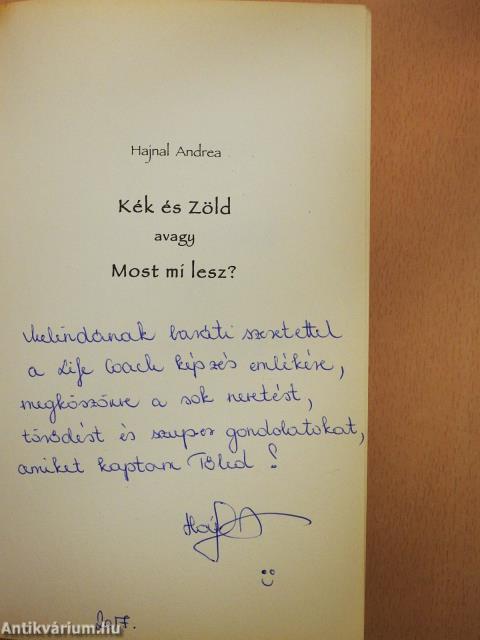 Hajnal Andrea
Kék és Zöld
avagy
Most mi lesz?
Melindának baráti szeretettel
a Life Coach képzés emlékére,
megköszönve a sok nevetést,
törődést és szuper gondolatokat,
amiket kaptam Tőled!
2017.
Antikvárium.hu